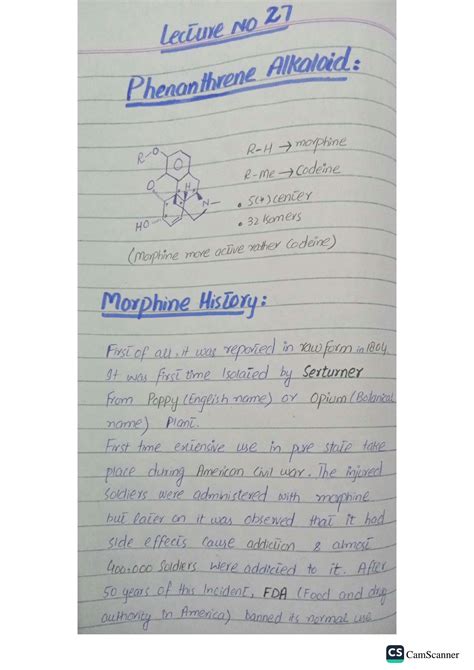 Lecture No 27
Phenanthrene Alkaloid:
R-O
R-H → morphine
O
H
R-Me → Codeine
N-
• 5(*) Center
HO
• 32 Isomers
(Morphine more active rather Codeine)
Morphine History:
First of all, it was reported in raw form in 1804
It was first time Isolated by Serturner
from Poppy (English name) or Opium (Botanical
name) Plant.
First time extensive use in pure state take
place during American Civil war. The injured
soldiers were administered with morphine
but later on it was observed that it had
side effects cause addiction & almost
400,000 Soldiers were addicted to it. After
50 years of this Incident, FDA (Food and drug
authority in America) banned its normal use.
CS CamScanner